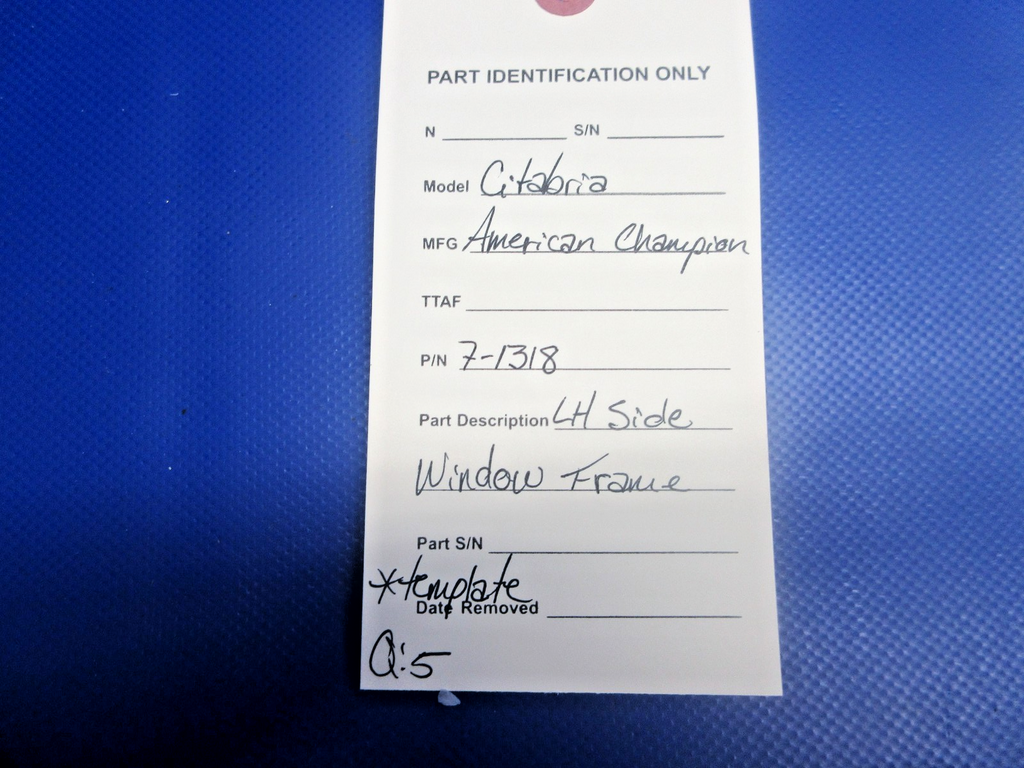 PART IDENTIFICATION ONLY
N S/N
Model Citabria
MFG American Champion
TTAF
P/N 7-1318
Part Description LH Side
Window Frame
Part S/N
*template
Date Removed
Q:5